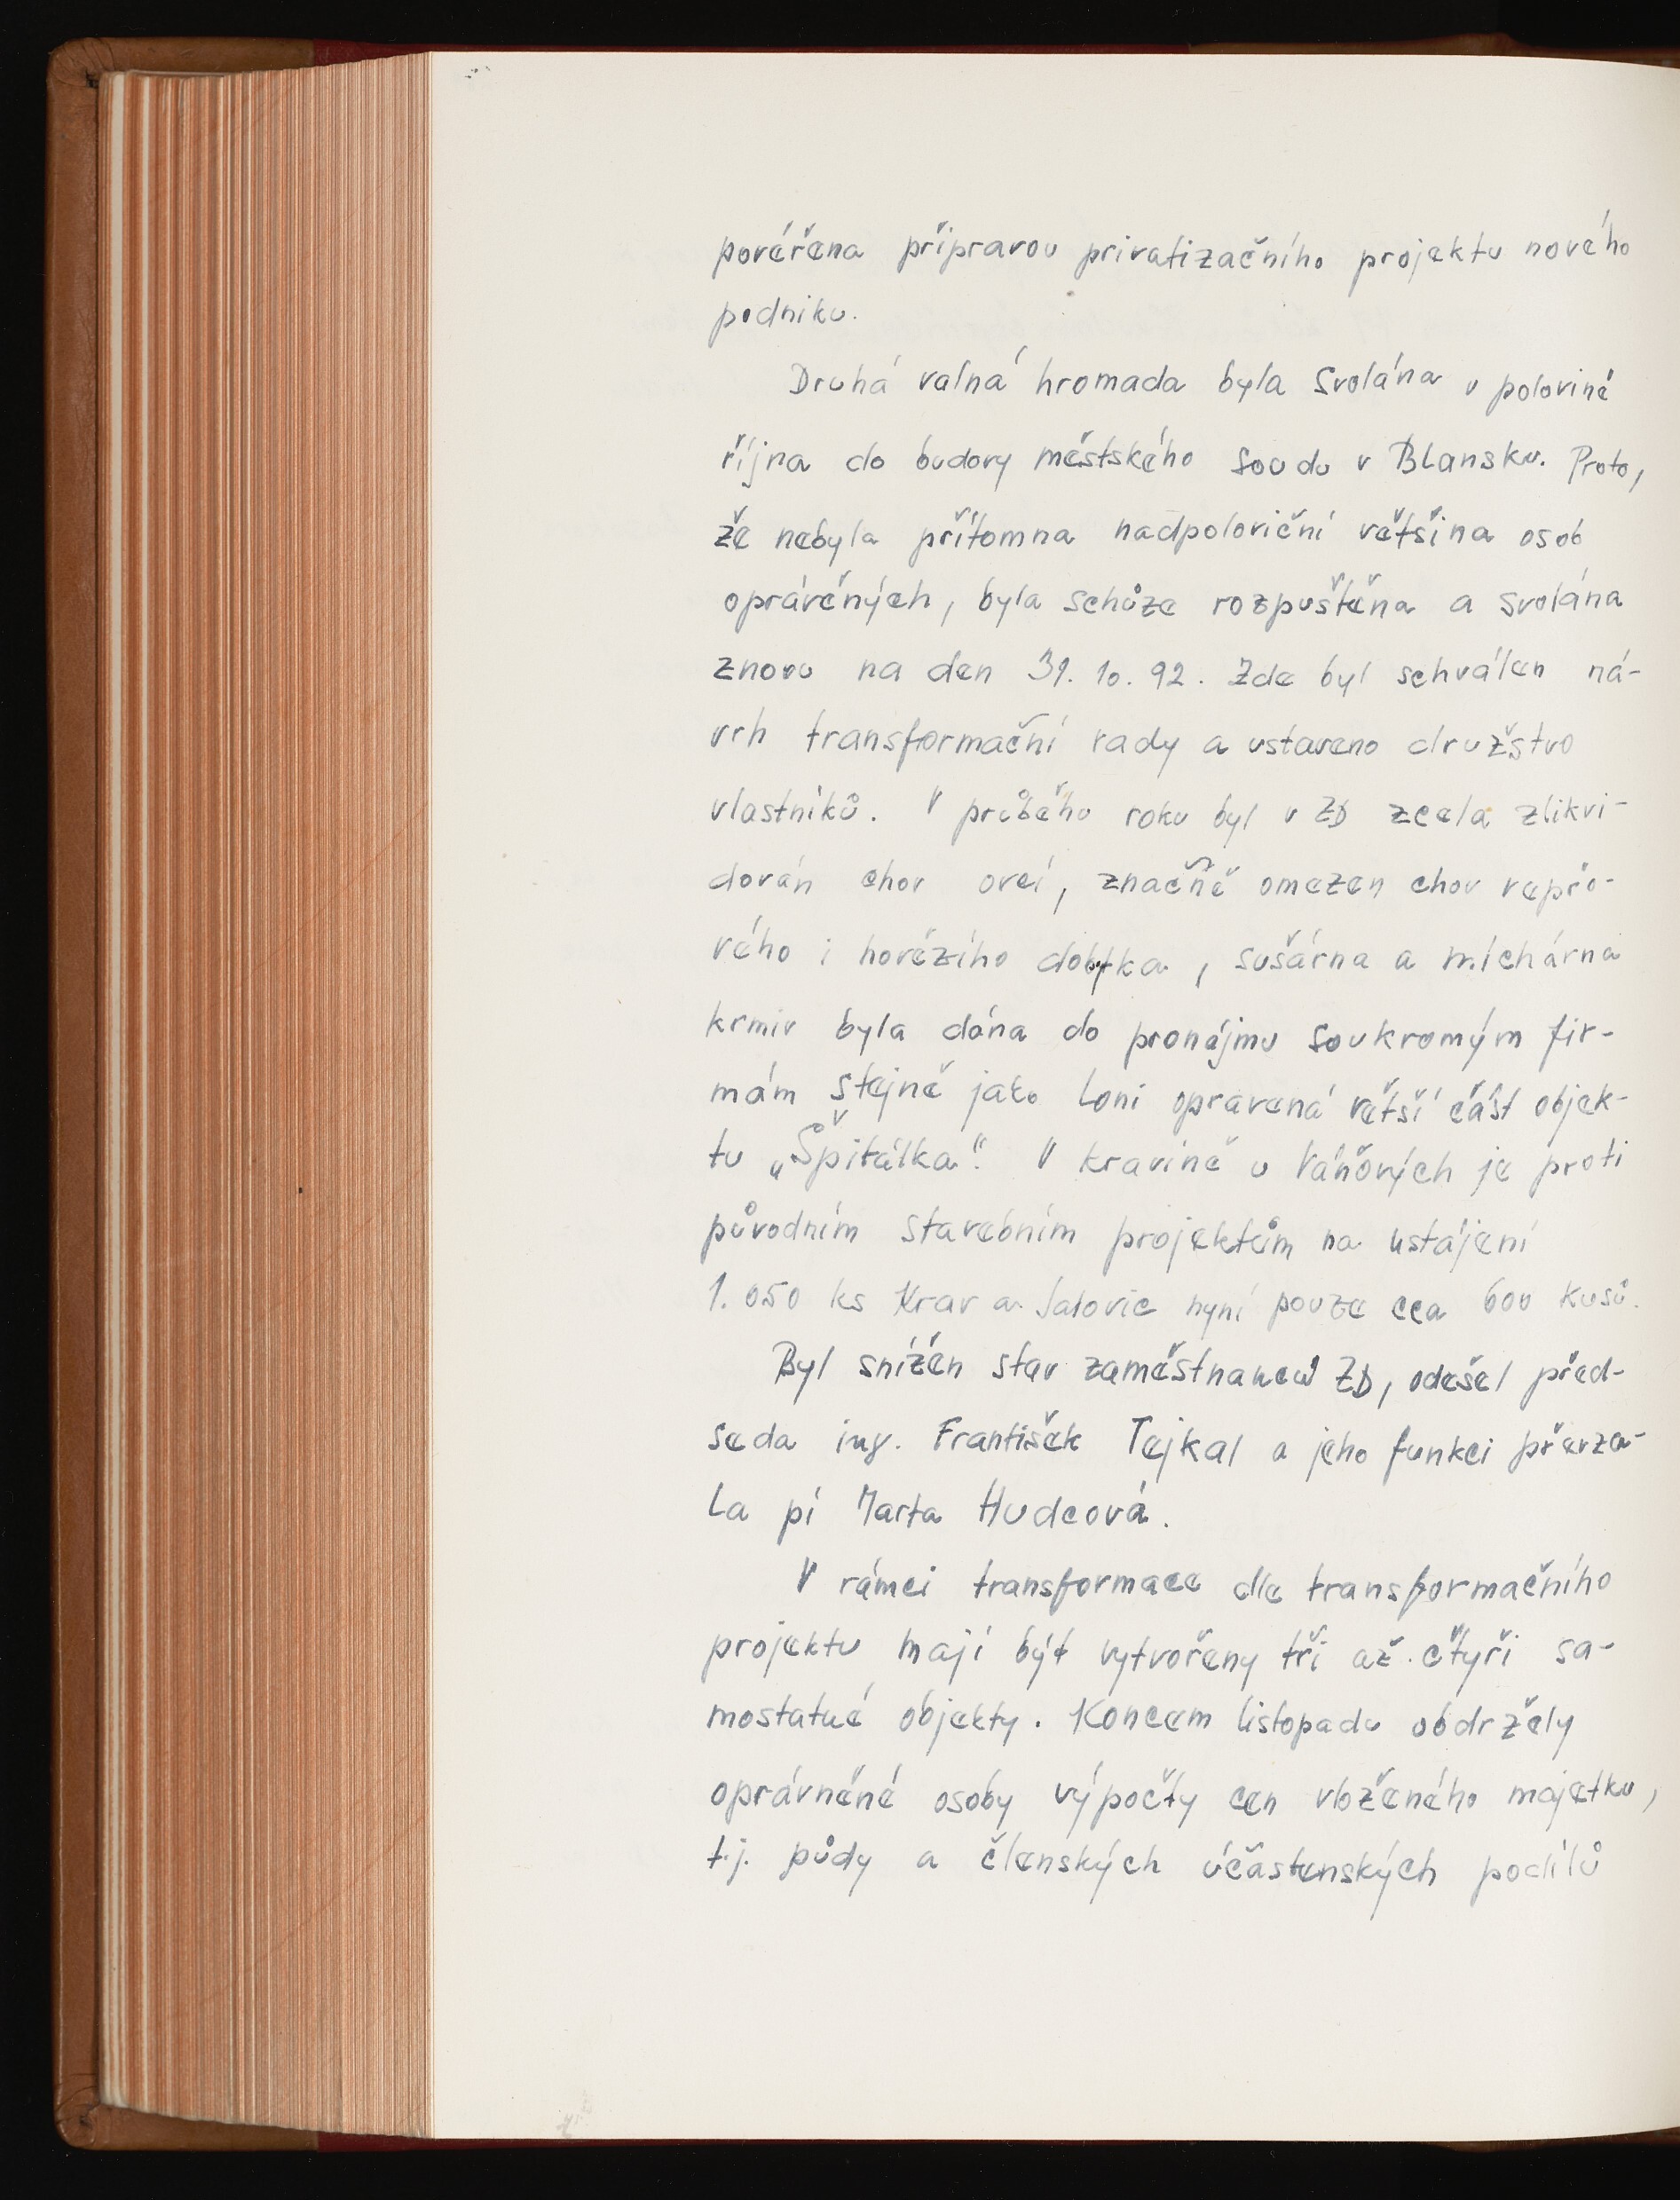 pověřena přípravou privatizačního projektu nového
podniku.
Druhá valná hromada byla svolána v polovině
října do budovy městského soudu v Blansku. Proto,
že nebyla přítomna nadpoloviční většina osob
oprávěných, byla schůze rozpuštěna a svolána
znovu na den 31. 10. 92. Zde byl schválen ná-
vrh transformační rady a ustaveno družstvo
vlastníků. V průběhu roku byl v ZD zcela zlikvi-
dován chov ovcí, značně omezen chov vepřo-
vého i hovězího dobytka, sušárna a míchárna
krmiv byla dána do pronájmu soukromým fir-
mám stejně jako loni opravená větší část objek-
tu „Špitálka". V kravíně u Váňových je proti
původním stavebním projektům na ustájení
1.050 ks krav a jalovic nyní pouze cca 600 kusů.
Byl snížen stav zaměstnanců ZD, odešel před-
seda ing. František Tejkal a jeho funkci převza-
la pí Marta Hudcová.
V rámci transformace dle transformačního
projektu mají být vytvořeny tři až čtyři sa-
mostatné objekty. Koncem listopadu obdržely
oprávněné osoby výpočty cen vloženého majetku,
t.j. půdy a členských účastenských podílů